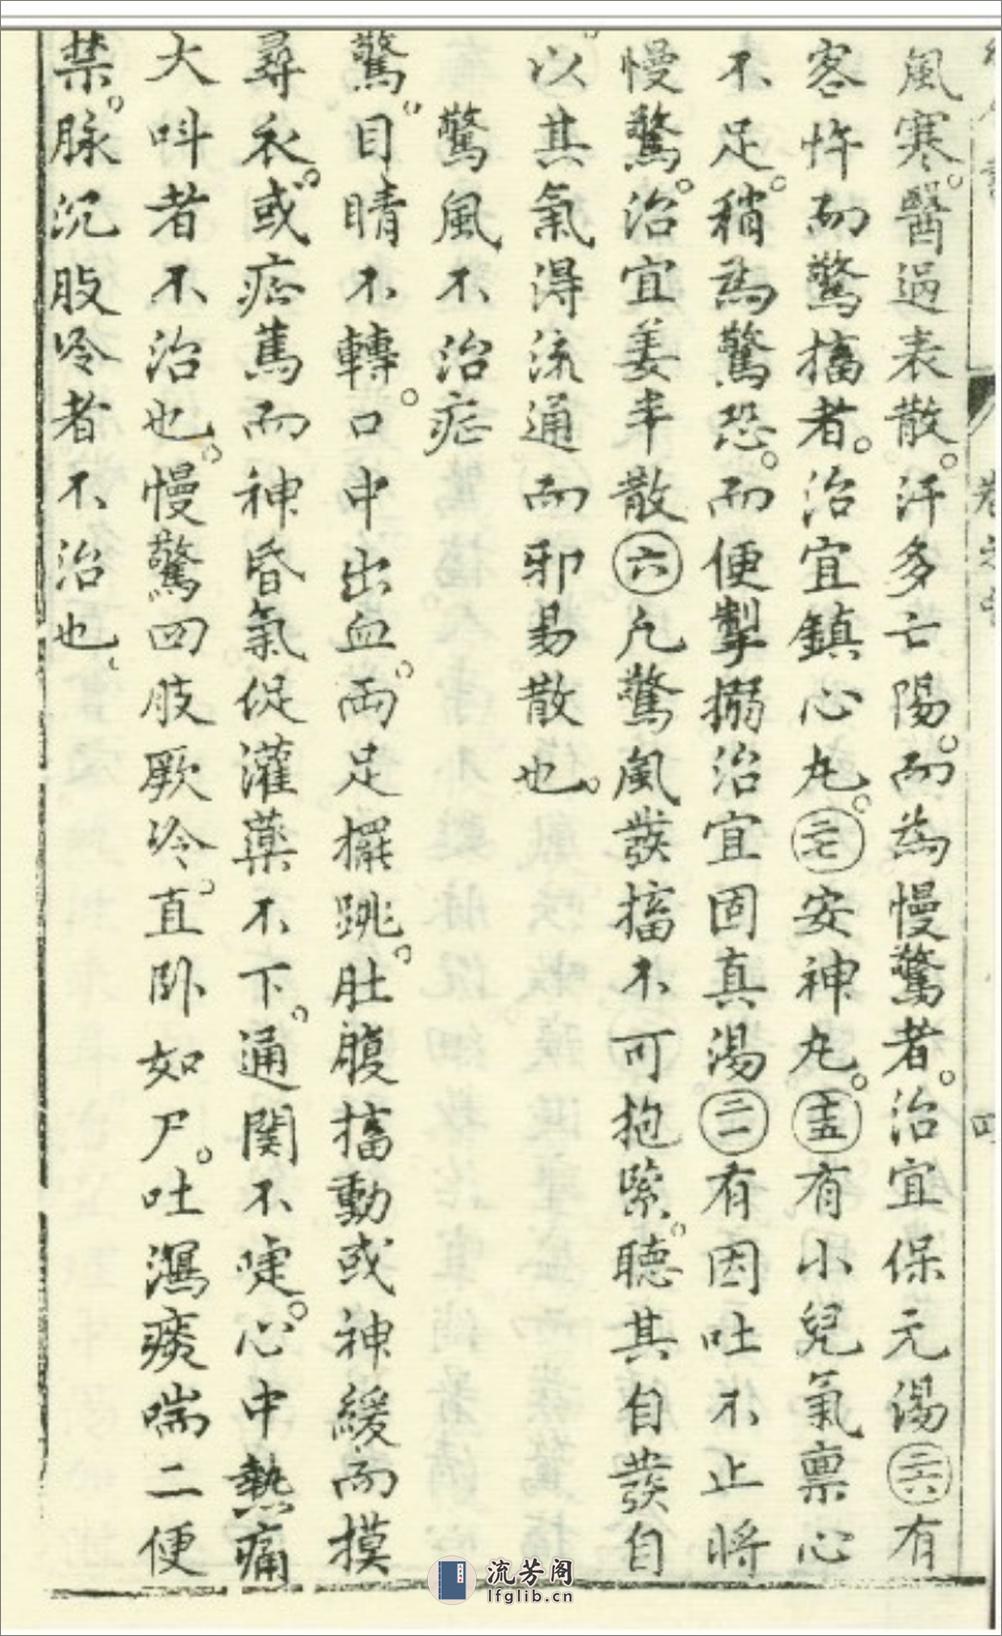 風寒。醫過表散。汗多亡陽。而為慢驚者。治宜保元湯㊁六有
客忤而驚搐者。治宜鎮心丸。二七安神丸。十五有小兒氣禀心
不足。稍為驚恐。而便掣搦治宜固真湯二一有因吐不止將
慢驚。治宜姜半散六凡驚風發搐不可抱緊。聽其自發自
以其氣得流通而邪易散也。
驚風不治症
驚。目睛不轉。口中出血。兩足擺跳。肚腹搐動或神緩而摸
尋衣。或症篤而神昏氣促灌藥不下。通関不嚏。心中熱痛
大呌者不治也。慢驚四肢厥冷。直卧如尸。吐瀉痰喘二便
禁。脉沉肢冷者不治也。
卷之中
四
流芳阁
lfglib.cn